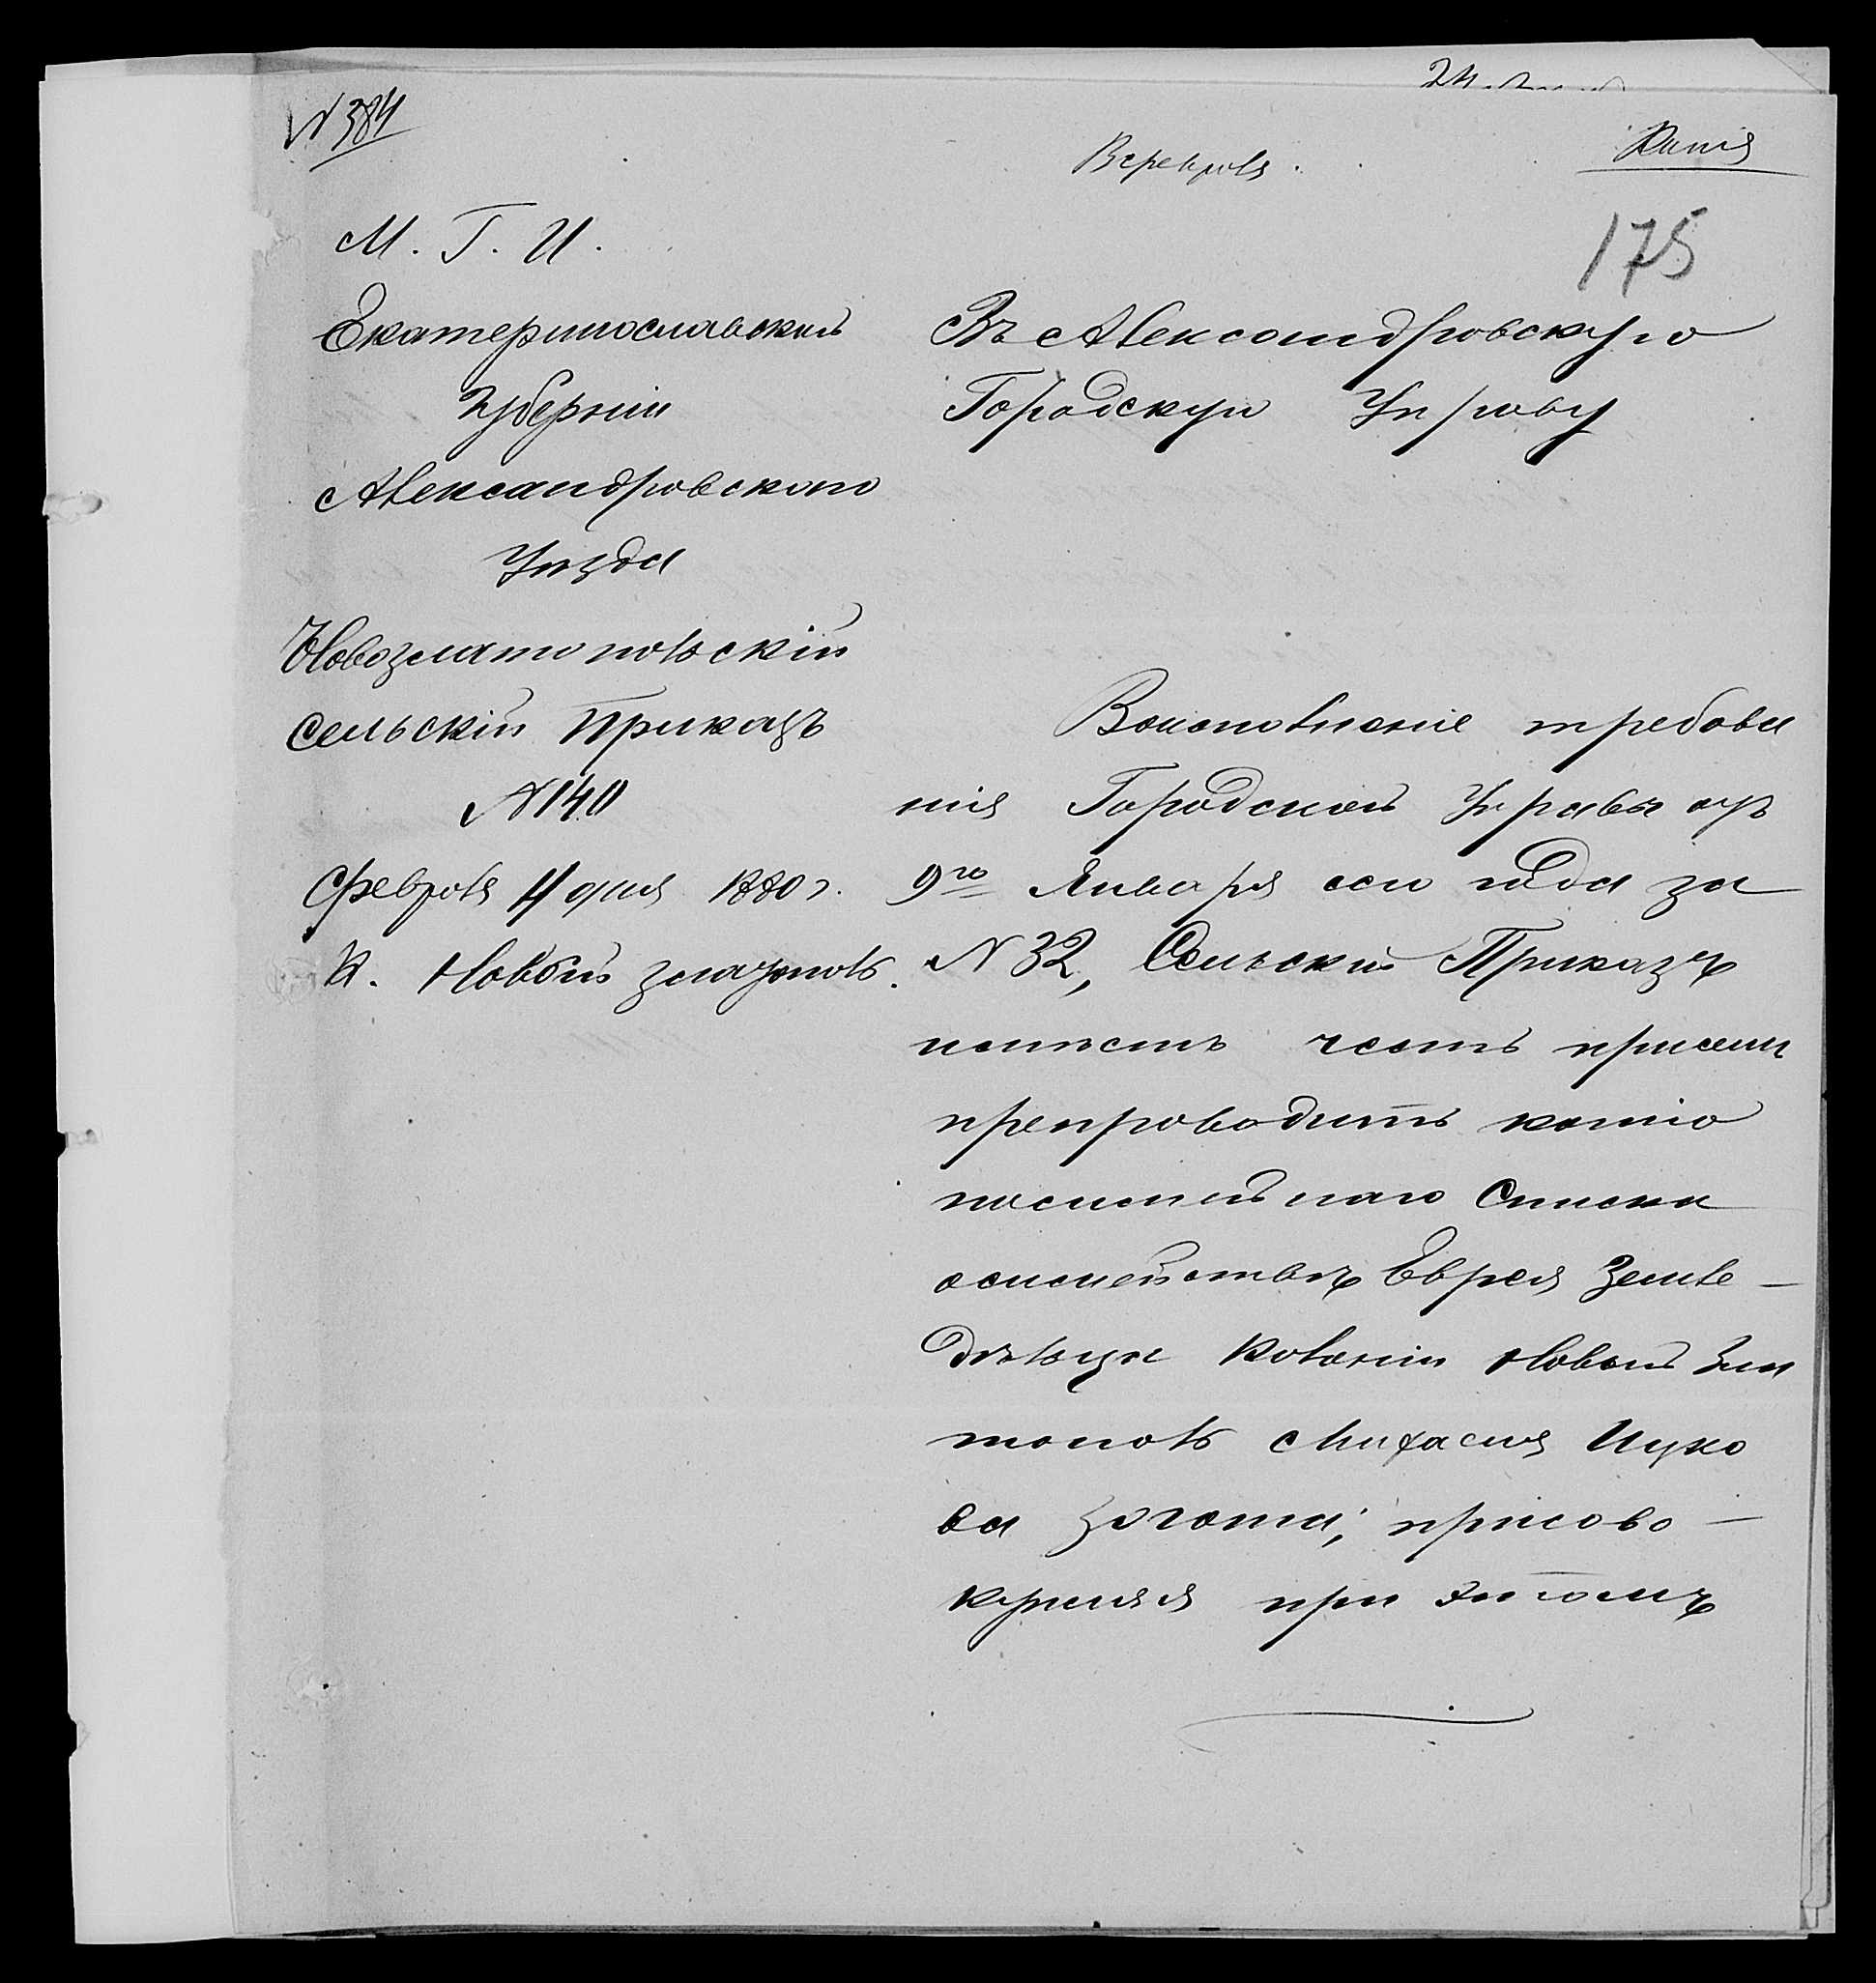 № 384
Копія
175
М. Г. И.
Екатеринославской
Губерніи
Александровскаго
Уѣзда
Новозлатопольскій
Сельскій Приказъ
№ 140
Февраля 4 дня 1880 г.
К. Новый златополь.
Въ Александровскую
Городскую Управу
Воисполненіе требова
нія Городской Управы отъ
9го Января сего года за
№ 32, Сельскій Приказъ
имѣетъ честь присемъ
препроводить копію
посемейнаго Списка
осемействѣ Еврея Земле-
дѣльца Колоніи Новый Зла
тополь Михаеля Ицко
ва Зогота; присово-
купляя при этомъ